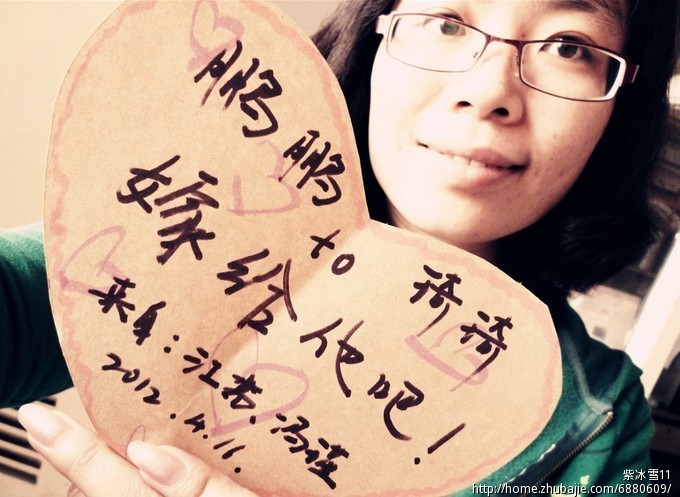 鹏鹏 to 琦琦
嫁给他吧！
来自：江苏、冯瑾
2012.4.11.
紫冰雪11
http://home.zhubajie.com/6880609/